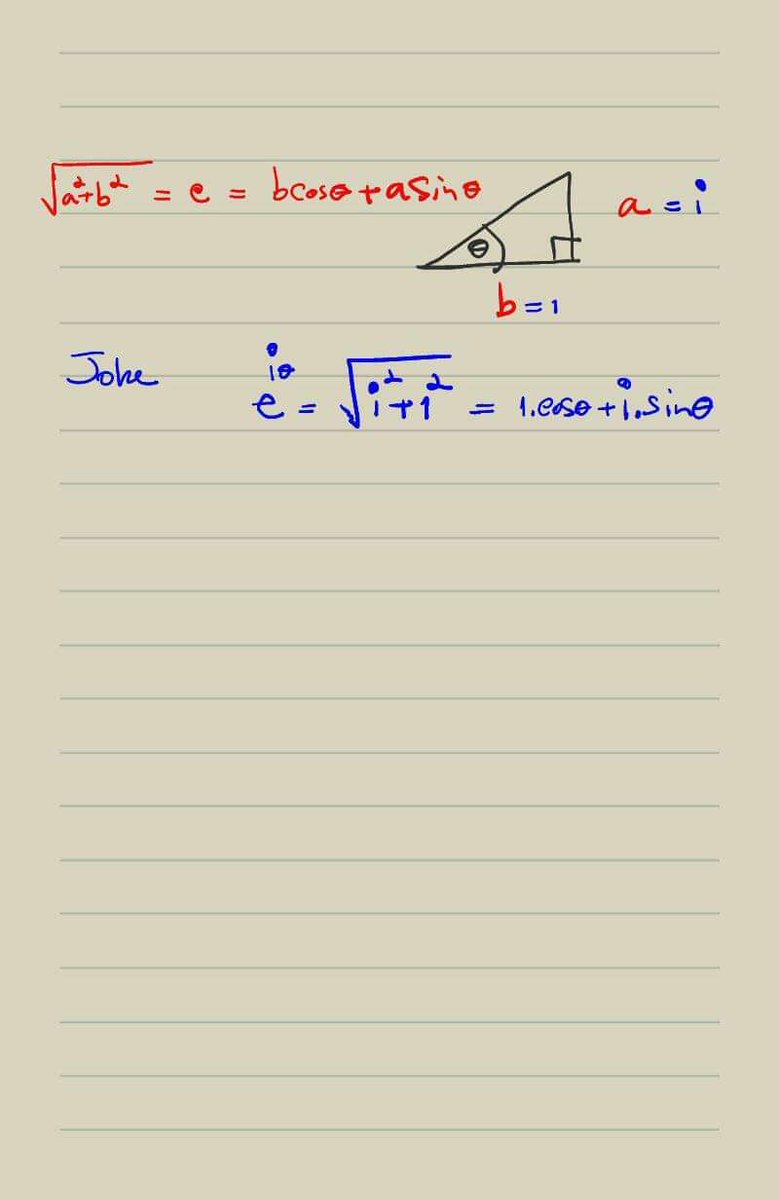 √(a²+b²) = e = bcosθ+asinθ
θ
a = i
b = 1
Joke e^(iθ) = √(i²+1²) = 1.cosθ+i.sinθ